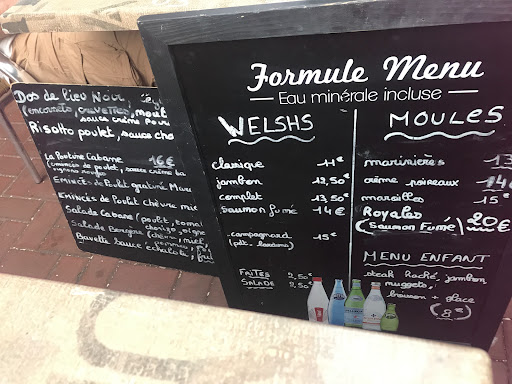 Dos de lieu Noir,
(encornets, crevettes, moul
sauce crème
Risotto poulet, sauce cho
La Poutine Cabane 16€
(émincés de poulet, sauce crème ba
Emincés de Poulet gratiné Maro
Emincés de Poulet chèvre mie
Salade Cabane (poulet, toma
Salade Bergère (chèvre, miel,
Bavette sauce échalote,
Formule Menu
Eau minérale incluse
WELSHS
classique 11€
jambon 12,50€
complet 13,50€
saumon fumé 14€
campagnard 15€
(pdt, lardons)
FRITES 2,50€
SALADE 2,50€
MOULES
marinières 13
crème poireaux 14€
maroilles 15€
Royales 20€
(Saumon Fumé)
MENU ENFANT
steak haché, jambon,
nuggets,
boisson + glace
(8€)